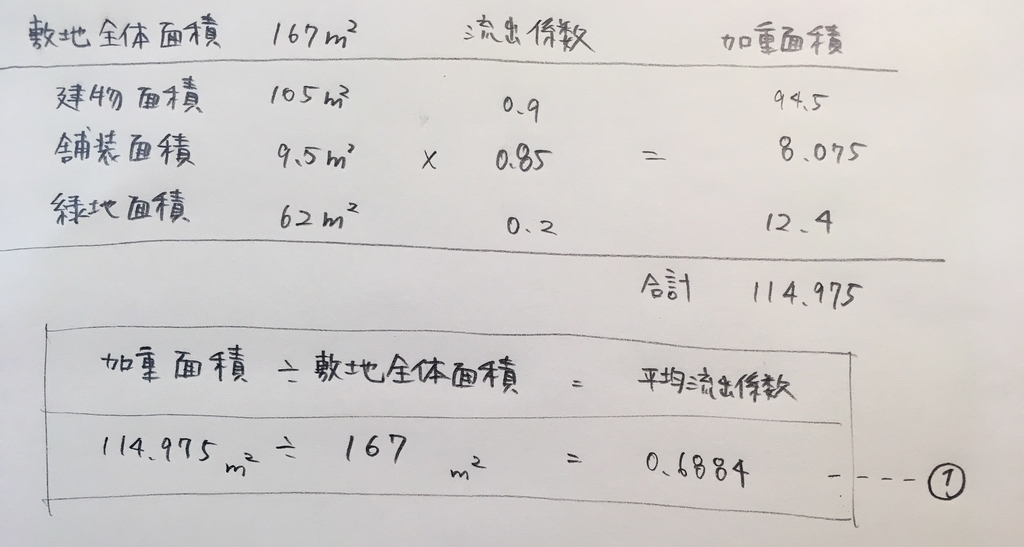 敷地全体面積 167m² 流出係数 加重面積
建物面積 105m² 0.9 94.5
舗装面積 9.5m² × 0.85 = 8.075
緑地面積 62m² 0.2 12.4
合計 114.975
加重面積 ÷ 敷地全体面積 = 平均流出係数
114.975m² ÷ 167 m² = 0.6884 ---- ①